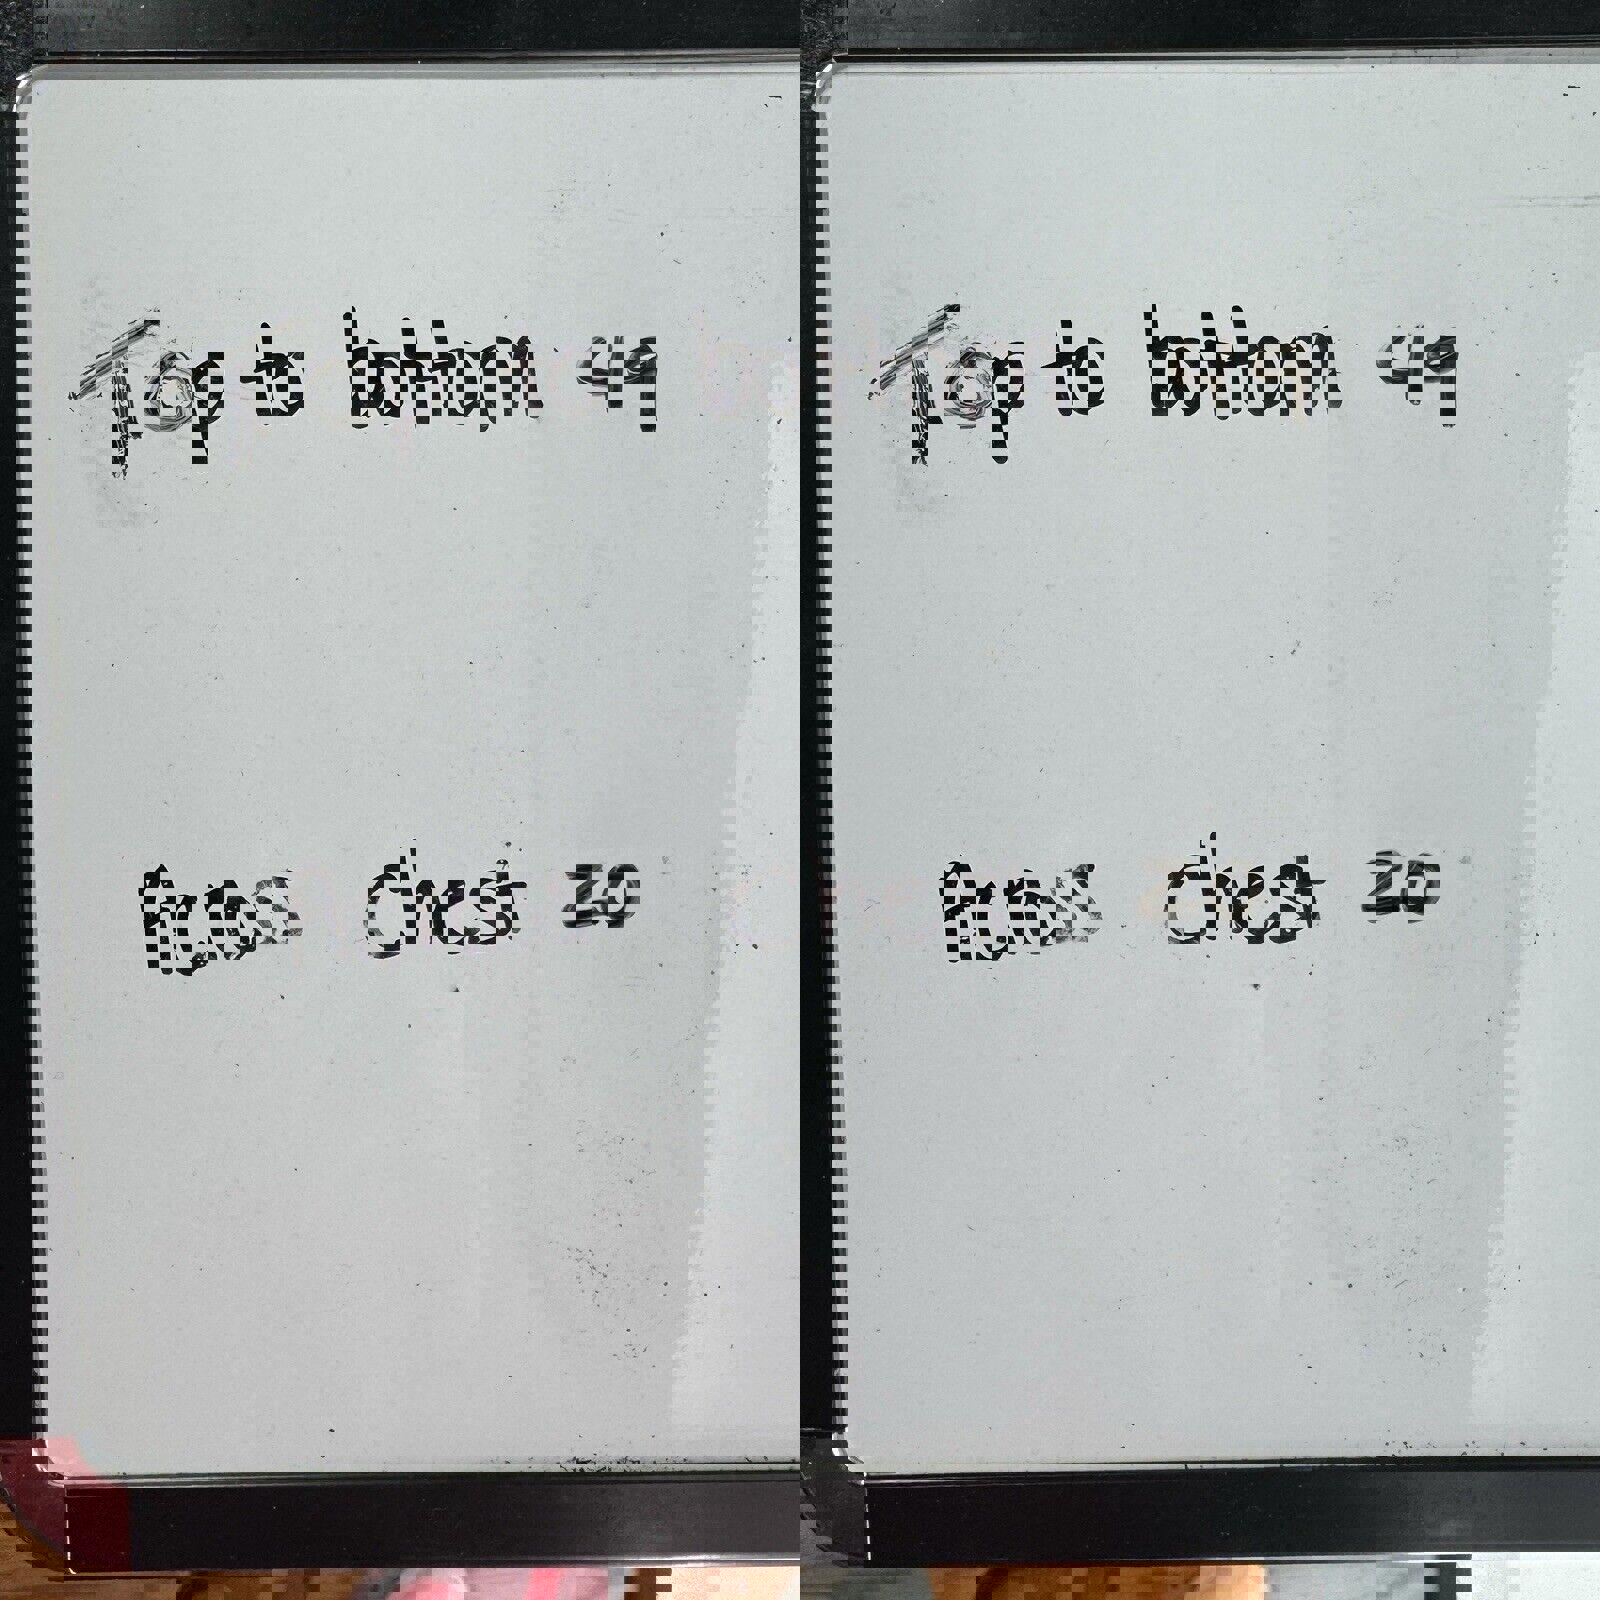 Top to bottom 49
Top to bottom 49
Across Chest 20
Across Chest 20